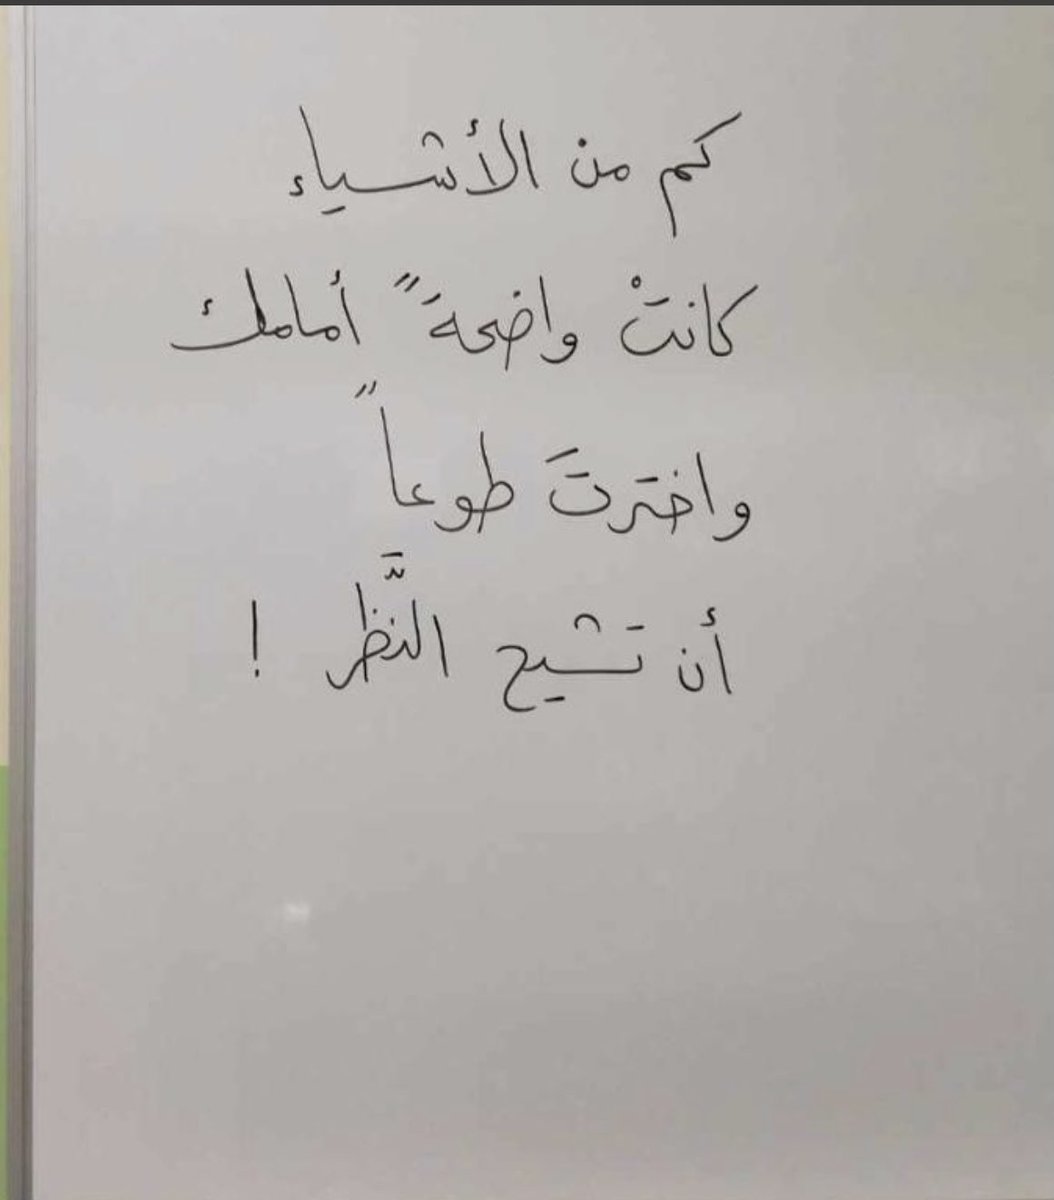 كم من الأشياء
كانتْ واضحةً أمامك
واخترتَ طوعاً
أن تشيح النَّظر !